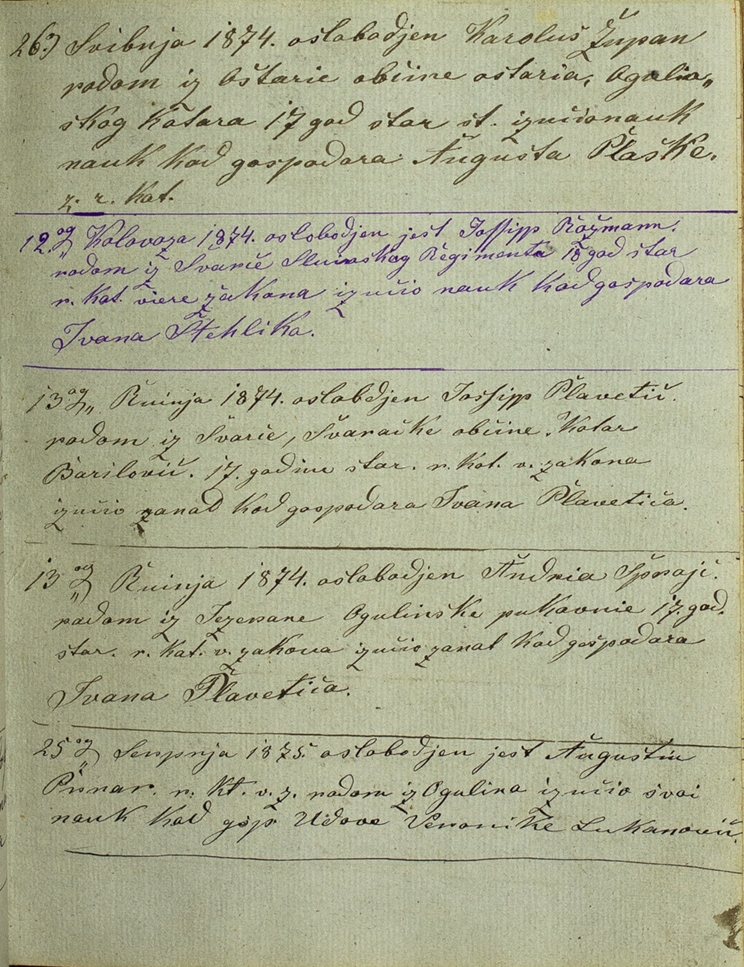 26g Svibnja 1874. oslobodjen Karoluš Župan
rodom iz Oštarie obćine ostaria, Ogulin„
skog Kotara 17 god star st. izučio nauk
nauk Kod gospodara Augušta Plaške.
z. r. Kat.
12.og Kolovoza 1874. oslobodjen jest Jossipp Rožmann.
rodom iz Svarče Sluinskog Regimenta 18 god star
r. Kat. viere zakona izučio nauk Kod gospodara
Ivana Štehlika.
13og„ Ruinja 1874. oslobdjen Jossipp Plavetić.
rodom iz Švarče, Švaračke obćine. Kotar
Barilović. 17. godine star. r. Kat. v. zakona
izučio zanad Kod gospodara Ivana Plavetića.
13og„ Ruinja 1874. oslobodjen Andria
rodom iz Jezerane Ogulinske pukovnie 17. god.
star. r. Kat. v. zakona izučio zanat Kod gospodara
Ivana Plavetića.
25og„ Serpnja 1875. oslobodjen jest Auguštin
r. Kt. v. z. rodom iz Ogulina izučio svoi
nauk Kod gsp Udove Veronike Lukanović.